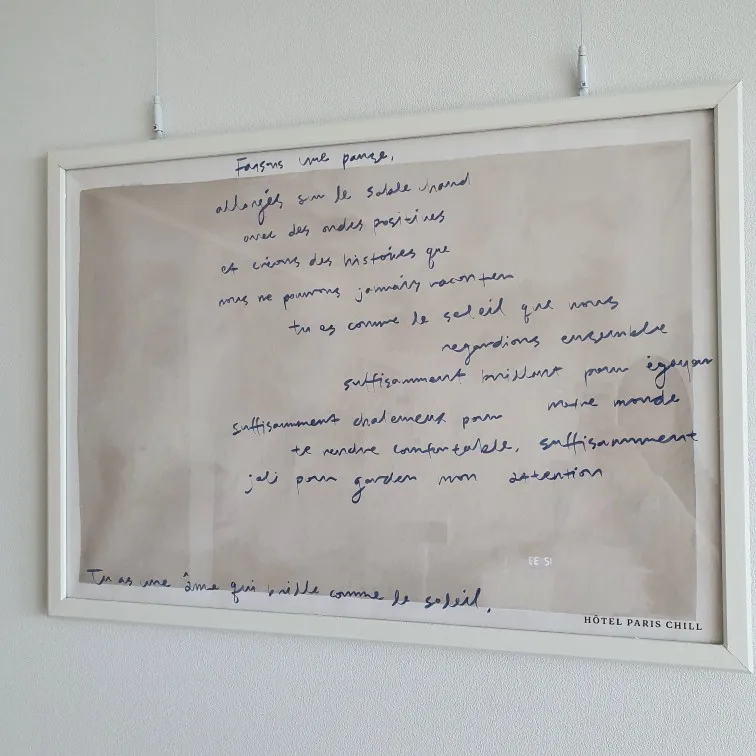 Faisons une pause,
allongés sur le sable chaud
avec des ondes positives
et créons des histoires que
nous ne pourrons jamais raconter
tu es comme le soleil que nous
regardions ensemble
suffisamment brillant pour égayer
notre monde
suffisamment chaleureux pour
te rendre confortable, suffisamment
joli pour garder mon attention
EE SI
Tu as une âme qui brille comme le soleil.
HÔTEL PARIS CHILL